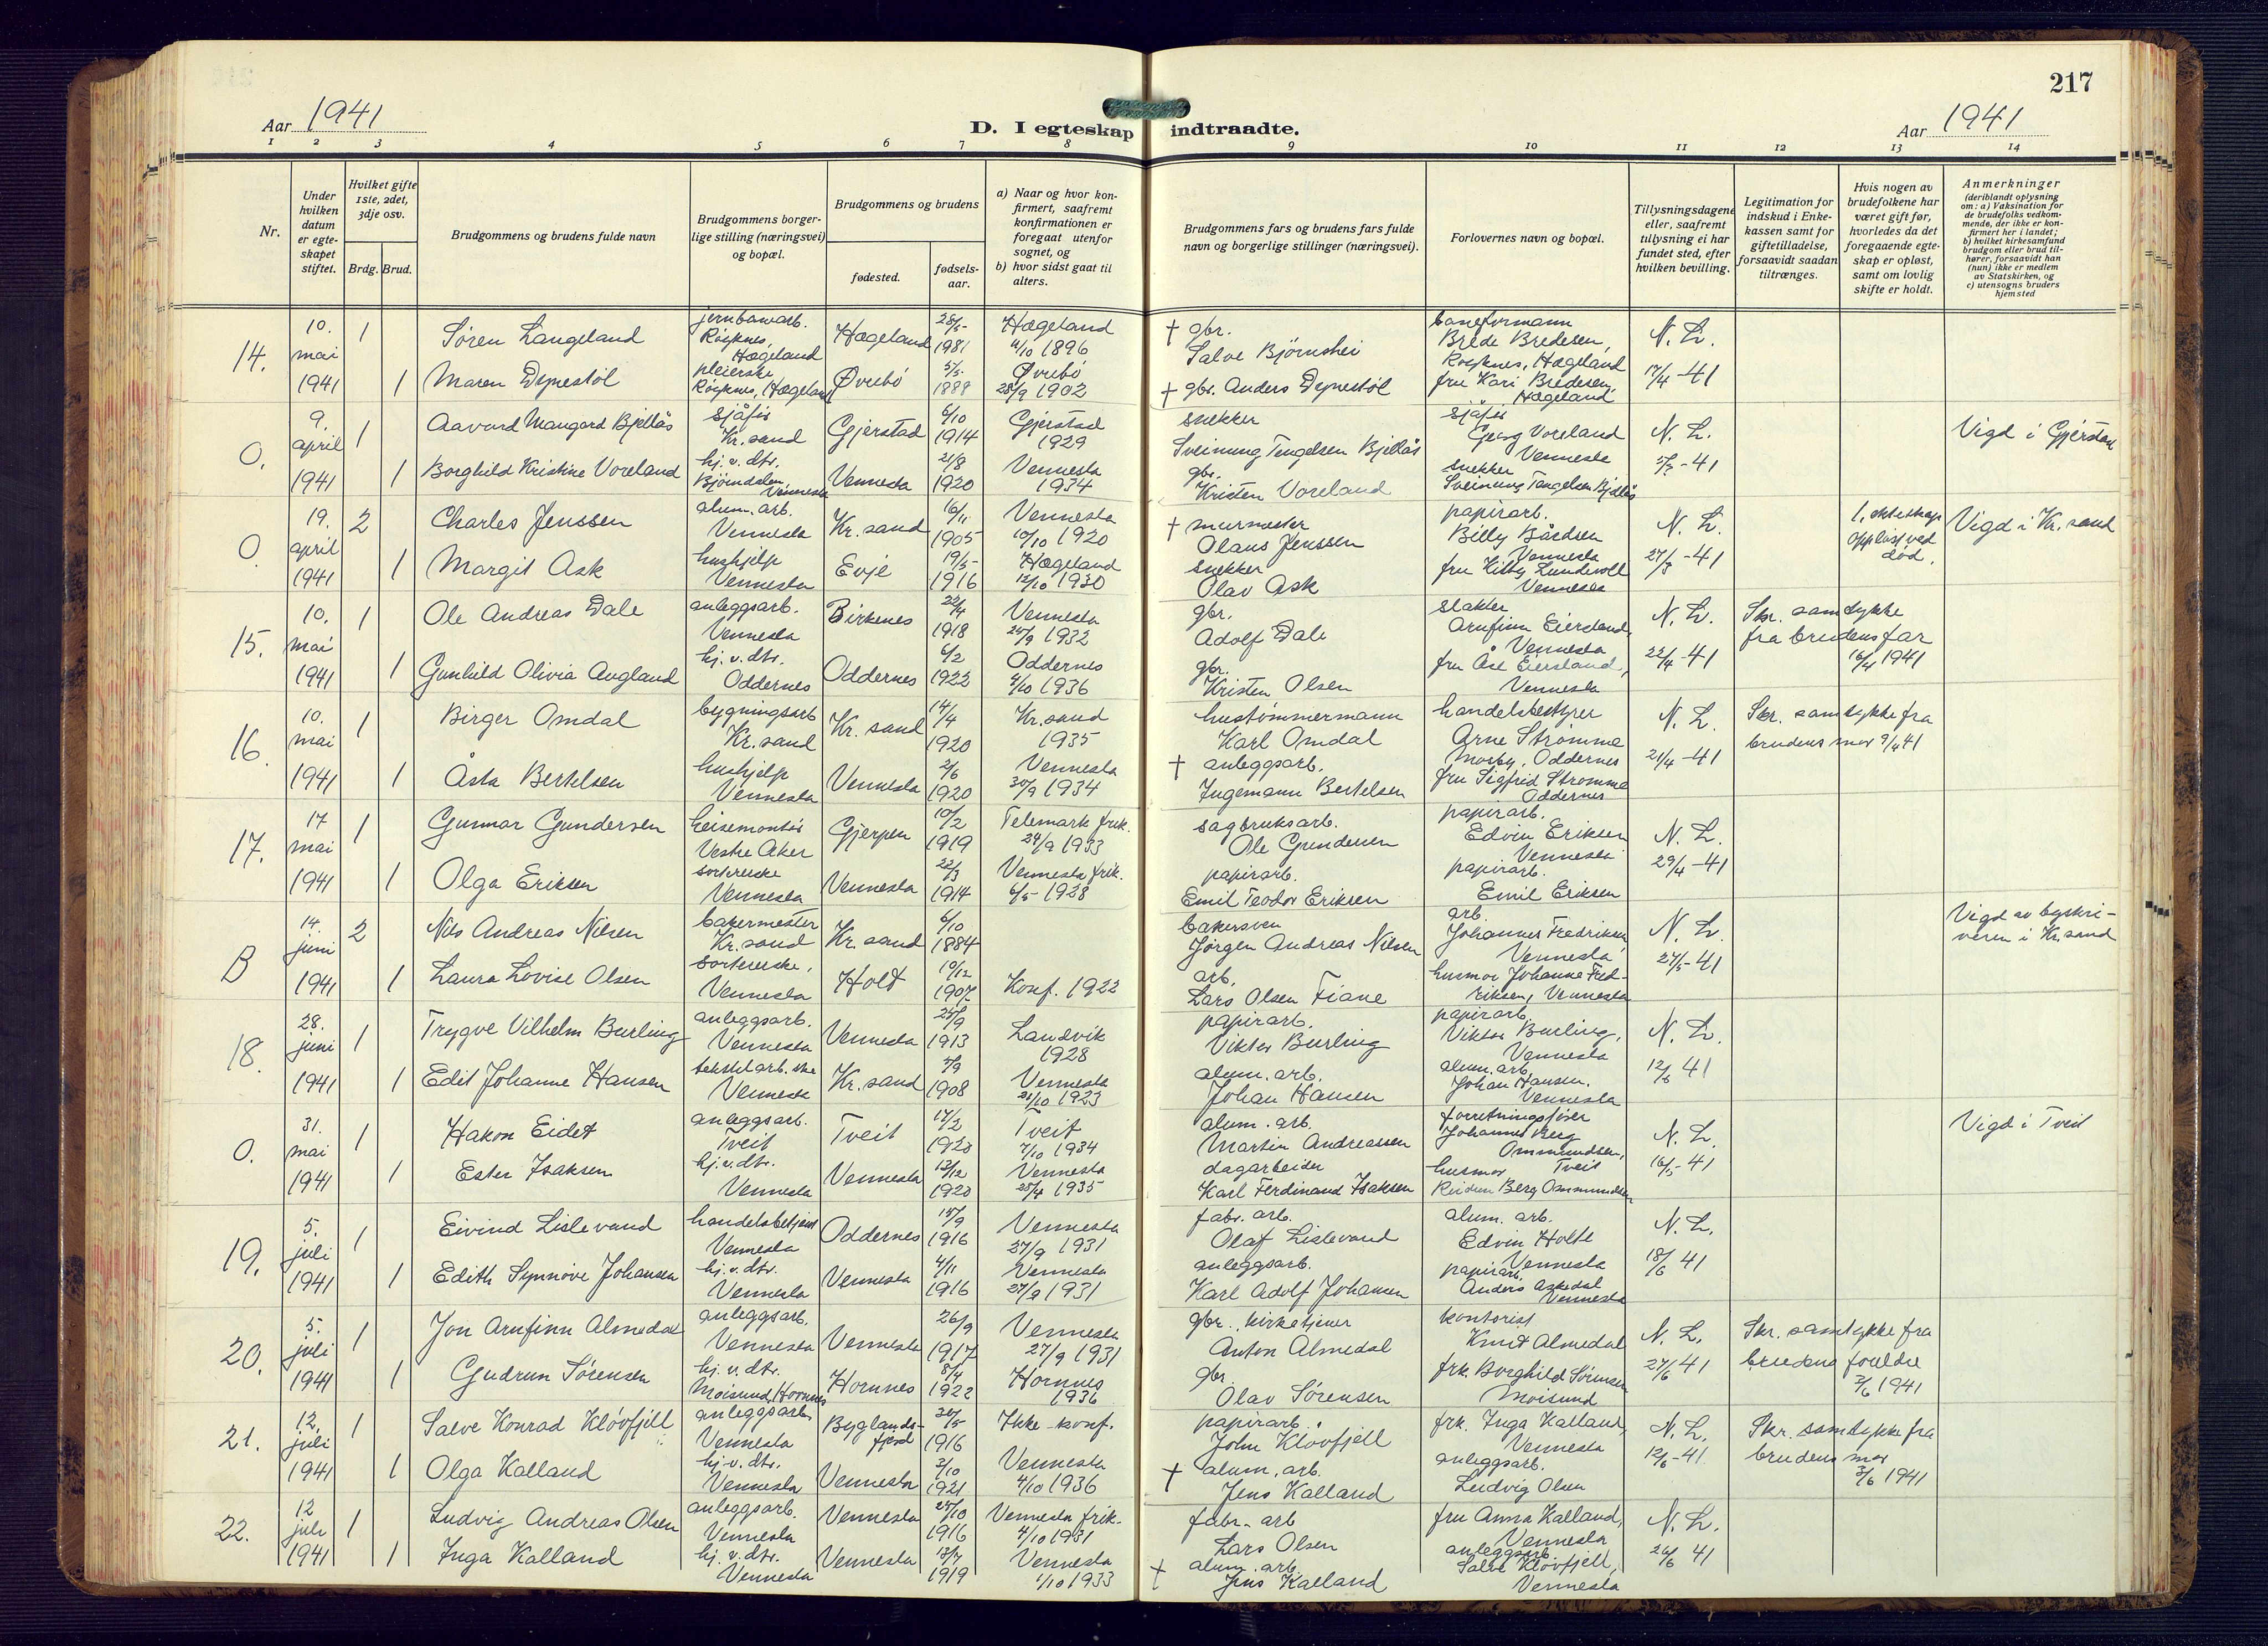 217
Aar 1941
D. I egteskap indtraadte.
Aar 1941
1 2 3 4 5 6 7 8 9 10 11 12 13 14
Nr.
Under hvilken datum er egte-skapet stiftet.
Hvilket gifte 1ste, 2det, 3dje osv.
Brdg. Brud.
Brudgommens og brudens fulde navn
Brudgommens borger-lige stilling (næringsvei) og bopæl.
Brudgommens og brudens
fødested.
fødsels-aar.
a) Naar og hvor kon-firmert, saafremt konfirmationen er foregaat utenfor sognet, og
b) hvor sidst gaat til alters.
Brudgommens fars og brudens fars fulde navn og borgerlige stillinger (næringsvei).
Forlovernes navn og bopæl.
Tillysningsdagene eller, saafremt tillysning ei har fundet sted, efter hvilken bevilling.
Legitimation for indskud i Enke-kassen samt for giftetilladelse, forsaavidt saadan tiltrænges.
Hvis nogen av brudefolkene har været gift før, hvorledes da det foregaaende egte-skap er opløst, samt om lovlig skifte er holdt.
Anmerkninger (deriblandt oplysning om: a) Vaksination for de brudefolks vedkom-mende, der ikke er kon-firmert her i landet; b) hvilket kirkesamfund brudgom eller brud til-hører, forsaavidt han (hun) ikke er medlem av Statskirken, og c) utensogns bruders hjemsted
14. 10. mai 1941 1 Søren Langeland jernbanearb. Røyknes, Hægeland Hægeland 25/5- 1981 Hægeland 4/10 1896 † gbr. Salve Bjørnshei baneformann Brede Bredesen, Røyknes, Hægeland N. L.
1 Maren Dynestøl pleierske Røyknes, Hægeland Øvrebø 5/5- 1888 Øvrebø 28/9 1902 † gbr. Anders Dynestøl fru Kari Bredesen, Hægeland 17/4 -41
O. 9. april 1941 1 Aavard Maugard Bjellås sjåfør Kr. sand Gjerstad 6/10 1914 Gjerstad 1929 snekker Sveinung Tengelsen Bjellås sjåfør Georg Voreland Vennesla N. L. Vigd i Gjerstad
1 Borghild Kristine Voreland hj. v. dtr. Bjørndalen, Vennesla Vennesla 21/8 1920 Vennesla 1934 gbr. Kristen Voreland snekker Sveinung Tengelsen Bjellås 5/3 -41
O. 19. april 1941 2 Charles Jenssen alum. arb. Vennesla Kr. sand 16/11 1905 Vennesla 10/10 1920 † murmester Olaus Jenssen papirarb. Billy Bårdsen Vennesla N. L. 1. ekteskap oppløst ved død. Vigd i Kr. sand
1 Margit Ask hushjelp Vennesla Evje 19/5- 1916 Hægeland 12/10 1930 snekker Olav Ask fru Kitty Lundevoll Vennesla 27/3 -41
15. 10. mai 1941 1 Ole Andreas Dale anleggsarb. Vennesla Birkenes 22/4 1918 Vennesla 25/9 1932 gbr. Adolf Dale slakter Arnfinn Eiersland, Vennesla N. L. Skr. samtykke fra brudens far 16/4 1941
1 Gunhild Olivia Augland hj. v. dtr. Oddernes Oddernes 6/2 1922 Oddernes 4/10 1936 gbr. Kristen Olsen fru Åse Eiersland, Vennesla 22/4 -41
16. 10. mai 1941 1 Birger Omdal bygningsarb Kr. sand Kr. sand 14/4 1920 Kr. sand 1935 hustømmermann Karl Omdal handelsbestyrer Arne Strømme Mosby, Oddernes N. L. Skr. samtykke fra brudens mor 9/4 41
1 Åsta Bertelsen hushjelp Vennesla Vennesla 2/6 1920 Vennesla 30/9 1934 † anleggsarb. Ingemann Bertelsen fru Sigfrid Strømme Oddernes 21/4 -41
17. 17 mai 1941 1 Gunnar Gundersen heisemontør Vestre Aker Gjerpen 10/2 1919 Telemark frik. 24/9 1933 sagbruksarb. Ole Gundersen papirarb. Edvin Eriksen Vennesla N. L.
1 Olga Eriksen sortererske Vennesla Vennesla 22/3 1914 Vennesla frik. 6/5- 1928 papirarb. Emil Teodor Eriksen papirarb. Emil Eriksen 29/4 -41
B 14. juni 1941 2 Nils Andreas Nilsen bakermester Kr. sand Kr. sand 6/10 1884 bakersven Jørgen Andreas Nilsen arb. Johannes Fredriksen, Vennesla N. L. Vigd av byskri-veren i Kr. sand
1 Laura Lovise Olsen sortererske, Vennesla Holt 10/12 1907 Konf. 1922 arb. Lars Olsen Fiane husmor Johanne Fred-riksen, Vennesla 27/5 -41
18. 28. juni 1941 1 Trygve Vilhelm Burling anleggsarb. Vennesla Vennesla 25/9 1913 Landvik 1928 papirarb. Viktor Burling papirarb. Viktor Burling, Vennesla N. L.
1 Edit Johanne Hansen tekstilarb. ske Vennesla Kr. sand 5/9 1908 Vennesla 21/10 1923 alum. arb. Johan Hansen alum. arb. Johan Hansen. Vennesla 12/6 41
O. 31. mai 1941 1 Håkon Eidet anleggsarb. Tveit Tveit 17/2 1920 Tveit 7/10 1934 alum. arb. Martin Andreassen forretningsfører Johannes Berg Ommundsen, Tveit N. L. Vigd i Tveit
1 Ester Isaksen hj. v. dtr. Vennesla Vennesla 12/12 1920 Vennesla 28/4 1935 dagarbeider Karl Ferdinand Isaksen husmor Reidun Berg Ommundsen 16/5 -41
19. 5. juli 1941 1 Eivind Lislevand handelsbetjent Vennesla Oddernes 15/9 1916 Vennesla 27/9 1931 fabr. arb. Olaf Lislevand alum. arb. Edvin Holte Vennesla N. L.
1 Edith Synnøve Johansen hj. v. dtr. Vennesla Vennesla 4/11 1916 Vennesla 27/9 1931 anleggsarb. Karl Adolf Johansen papirarb. Anders Askedal Vennesla 18/6 41
20. 5. juli 1941 1 Jon Arnfinn Almedal anleggsarb. Vennesla Vennesla 26/9 1917 Vennesla 27/9 1931 gbr., kirketjener Anton Almedal kontorist Knut Almedal N. L. Skr. samtykke fra brudens foreldre 2/6 1941
1 Gudrun Sørensen hj. v. dtr. Moisund, Hornnes Hornnes 8/4 1922 Hornnes 1936 gbr. Olav Sørensen frk. Borghild Sørensen Moisund 27/6 41
21. 12. juli 1941 1 Salve Konrad Kløvfjell anleggsarb. Vennesla Byglands-fjord 30/5 1916 Ikke konf. papirarb. John Kløvfjell frk. Inga Kalland, Vennesla N. L. Skr. samtykke fra brudens mor 3/6 1941
1 Olga Kalland hj. v. dtr. Vennesla Vennesla 2/10 1921 Vennesla 4/10 1936 † alum. arb. Jens Kalland anleggsarb. Ludvig Olsen 12/6 -41
22. 12 juli 1941 1 Ludvig Andreas Olsen anleggsarb. Vennesla Vennesla 25/10 1916 Vennesla frik. 4/10 1931 fabr. arb Lars Olsen fru Anna Kalland, Vennesla N. L.
1 Inga Kalland hj. v. dtr. Vennesla Vennesla 13/7 1919 Vennesla 1/10 1933 † alum. arb. Jens Kalland anleggsarb. Salve Kløvfjell, Vennesla 26/6 41